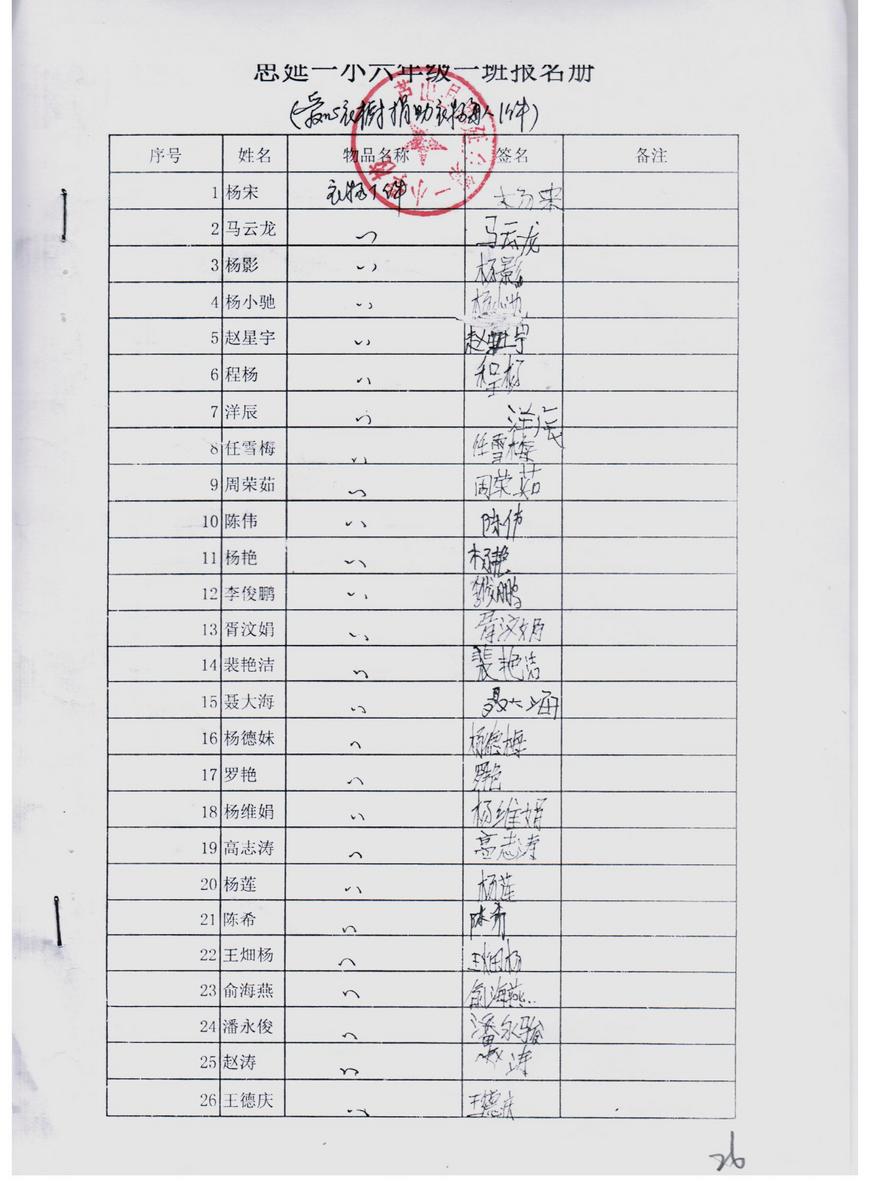 思延一小六年级一班报名册
(爱心衣橱捐助衣物每人1件)
芦山县思延乡第一小学校
序号 姓名 物品名称 签名 备注
1 杨宋 衣物1件 杨宋
2 马云龙 〃 马云龙
3 杨影 〃 杨影
4 杨小驰 〃 杨小驰
5 赵星宇 〃 赵星宇
6 程杨 〃 程杨
7 洋辰 〃 洋辰
8 任雪梅 〃 任雪梅
9 周荣茹 〃 周荣茹
10 陈伟 〃 陈伟
11 杨艳 〃 杨艳
12 李俊鹏 〃 李俊鹏
13 胥汶娟 〃 胥汶娟
14 裴艳洁 〃 裴艳洁
15 聂大海 〃 聂大海
16 杨德妹 〃 杨德梅
17 罗艳 〃 罗艳
18 杨维娟 〃 杨维娟
19 高志涛 〃 高志涛
20 杨莲 〃 杨莲
21 陈希 〃 陈希
22 王畑杨 〃 王畑杨
23 俞海燕 〃 俞海燕
24 潘永俊 〃 潘永骏
25 赵涛 〃 赵涛
26 王德庆 〃 王德庆
26